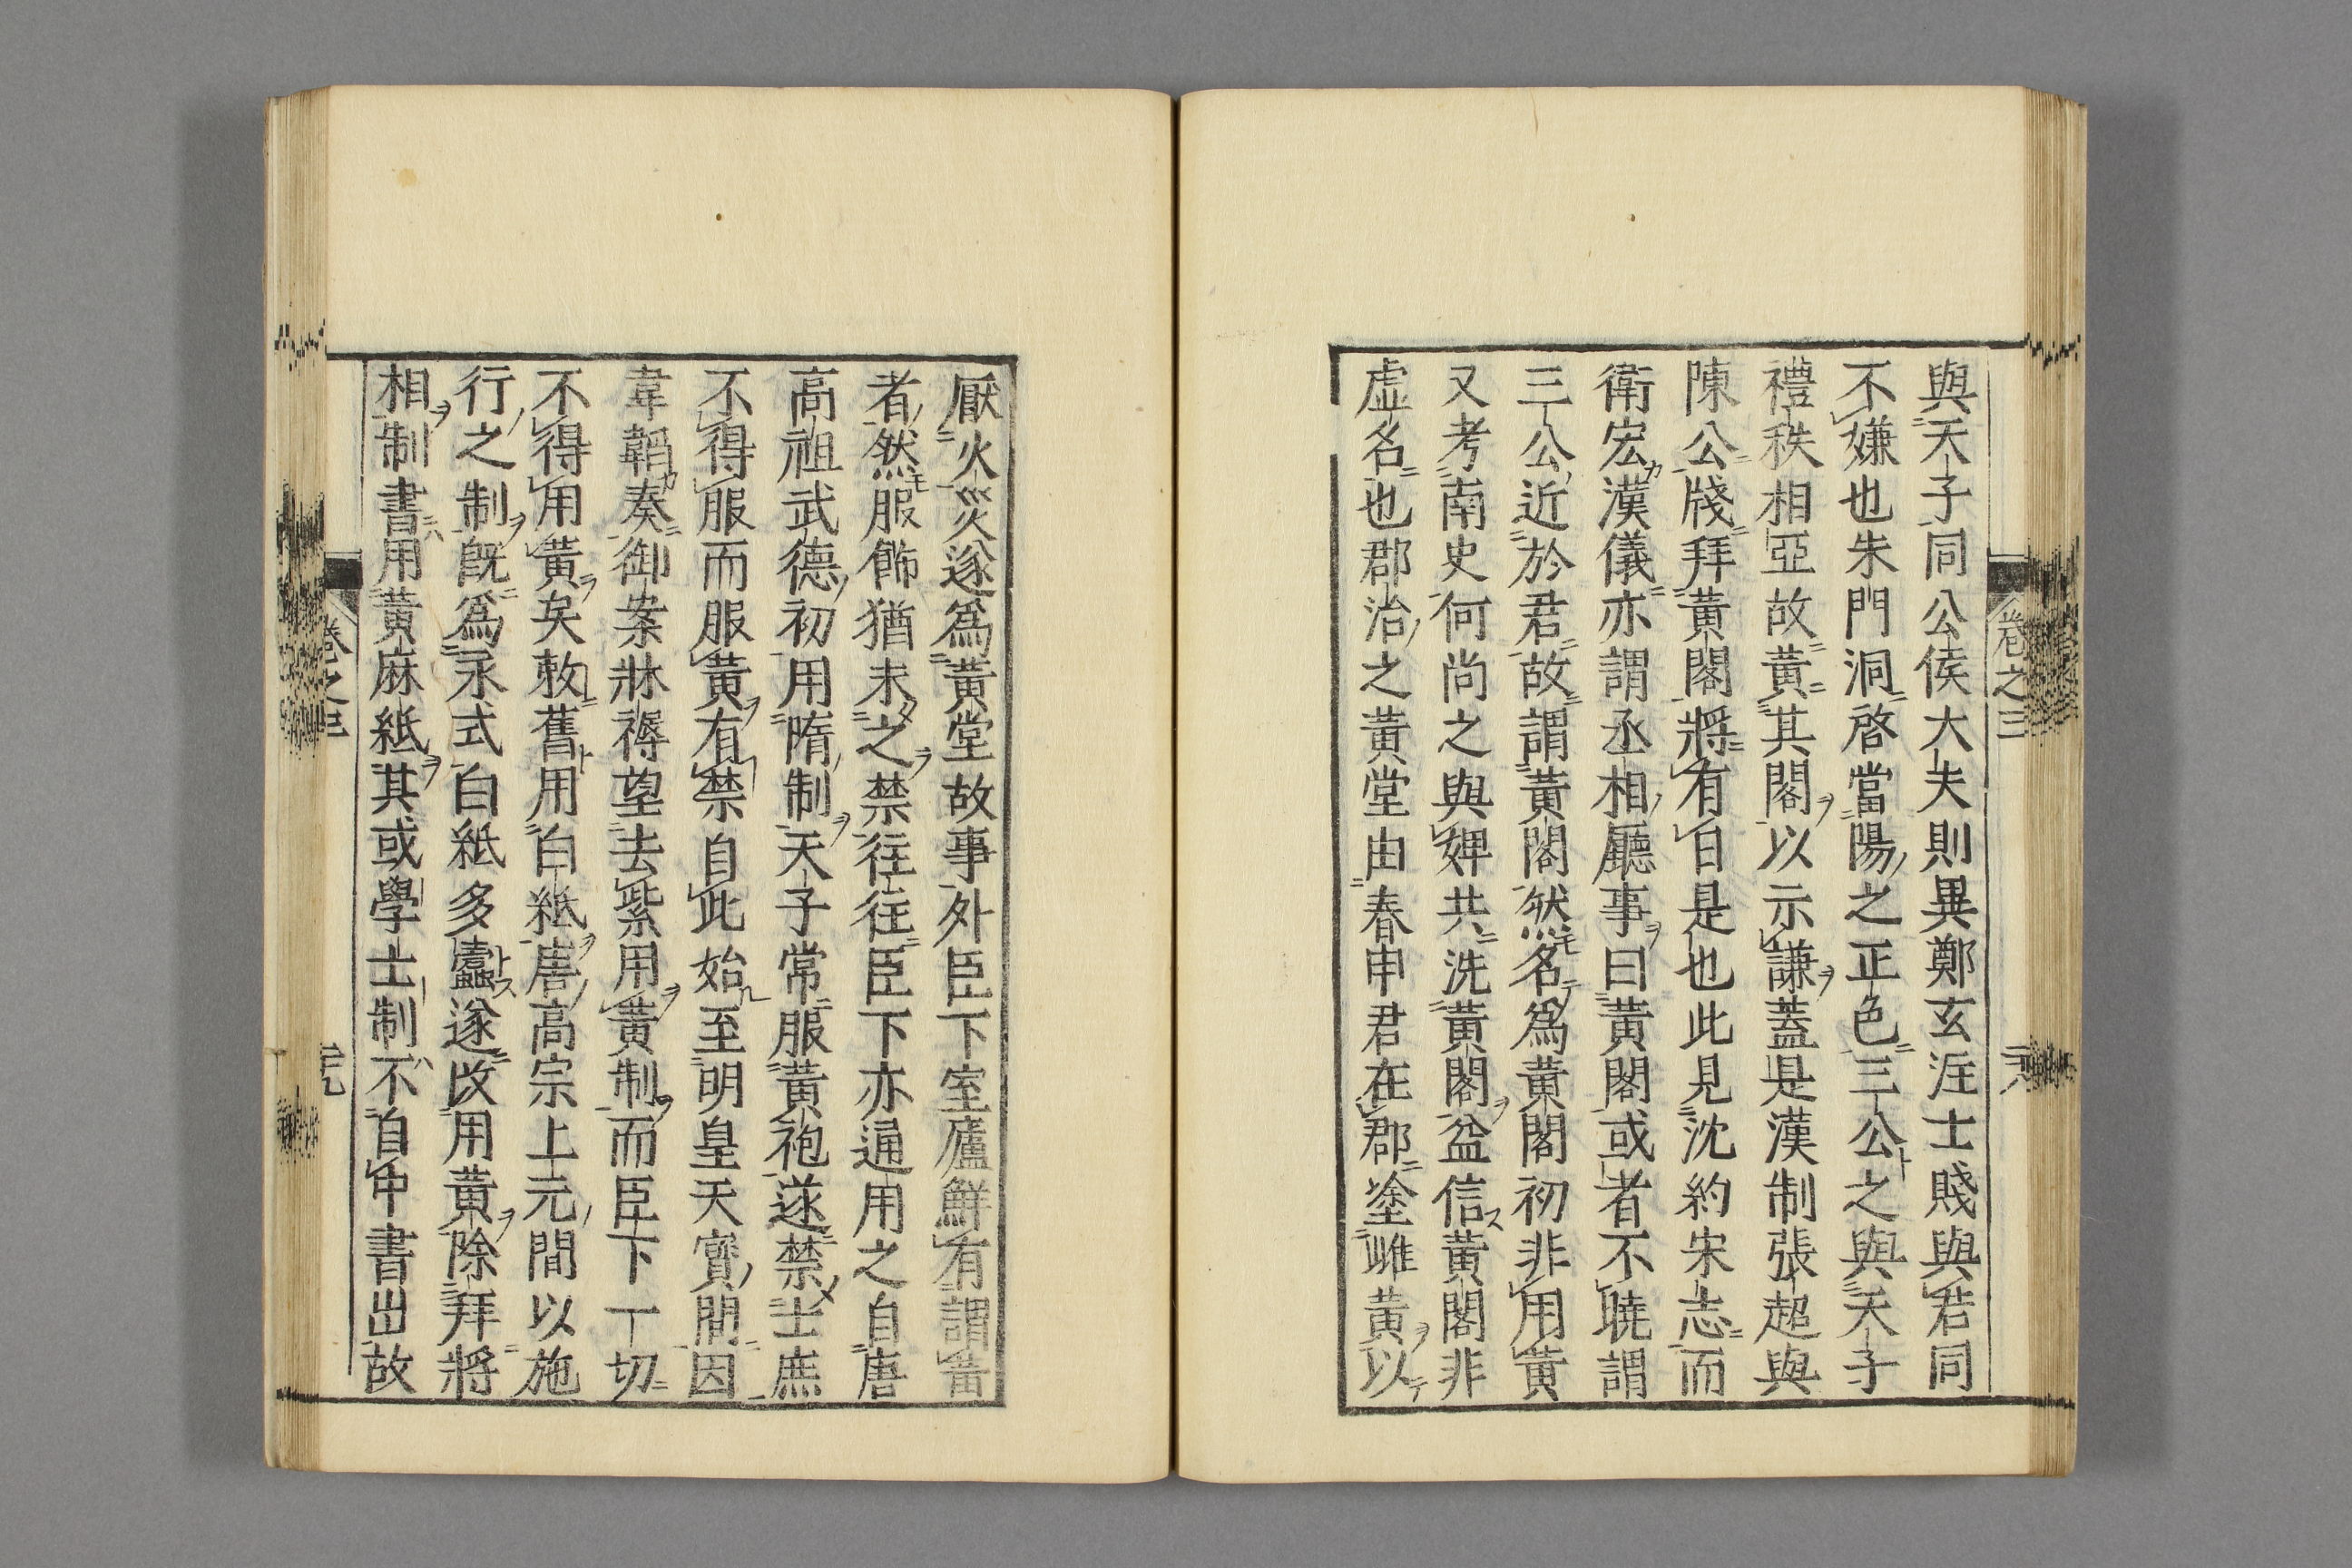 卷之三
與天子同公侯大夫則異鄭玄注士賤與君同
不嫌也朱門洞啓當陽之正色三公之與天子
禮秩相亞故黃其閣以示謙蓋是漢制張超與
陳公牋拜黃閣將有日是也此見沈約宋志而
衛宏漢儀亦謂丞相廳事曰黃閣或者不曉謂
三公近於君故謂黃閣然名為黃閣初非用黃
又考南史何尚之與婢共洗黃閣益信黃閣非
虛名也郡治之黃堂由春申君在郡塗雌黃以
厭火災遂為黃堂故事外臣下室廬鮮有謂黃
者然服飾猶未之禁往往臣下亦通用之自唐
高祖武德初用隋制天子常服黃袍遂禁士庶
不得服而服黃有禁自此始至明皇天寶間因
韋韜奏御案牀褥望去紫用黃制而臣下一切
不得用黃矣敕舊用白紙唐高宗上元間以施
行之制既為永式白紙多蠹遂改用黃除拜將
相制書用黃麻紙其或學士制不自中書出故
卷之三